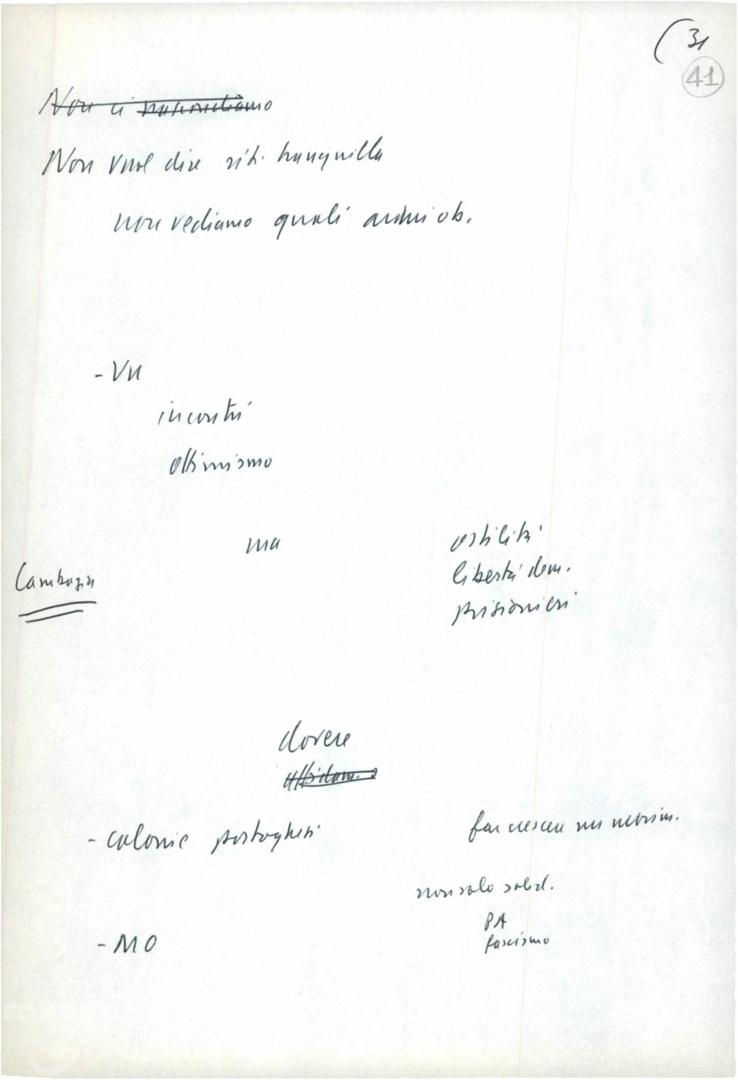 (31
41
Non ci nascondiamo
Non vuol dire sit. tranquilla
non vediamo quali
- VN
incontri
ottimismo
ma
ostilità
libertà dem.
prigionieri
Cambogia
dovere
- colonie portoghesi
far crescere un movim.
non solo solid.
PA
fascismo
- MO